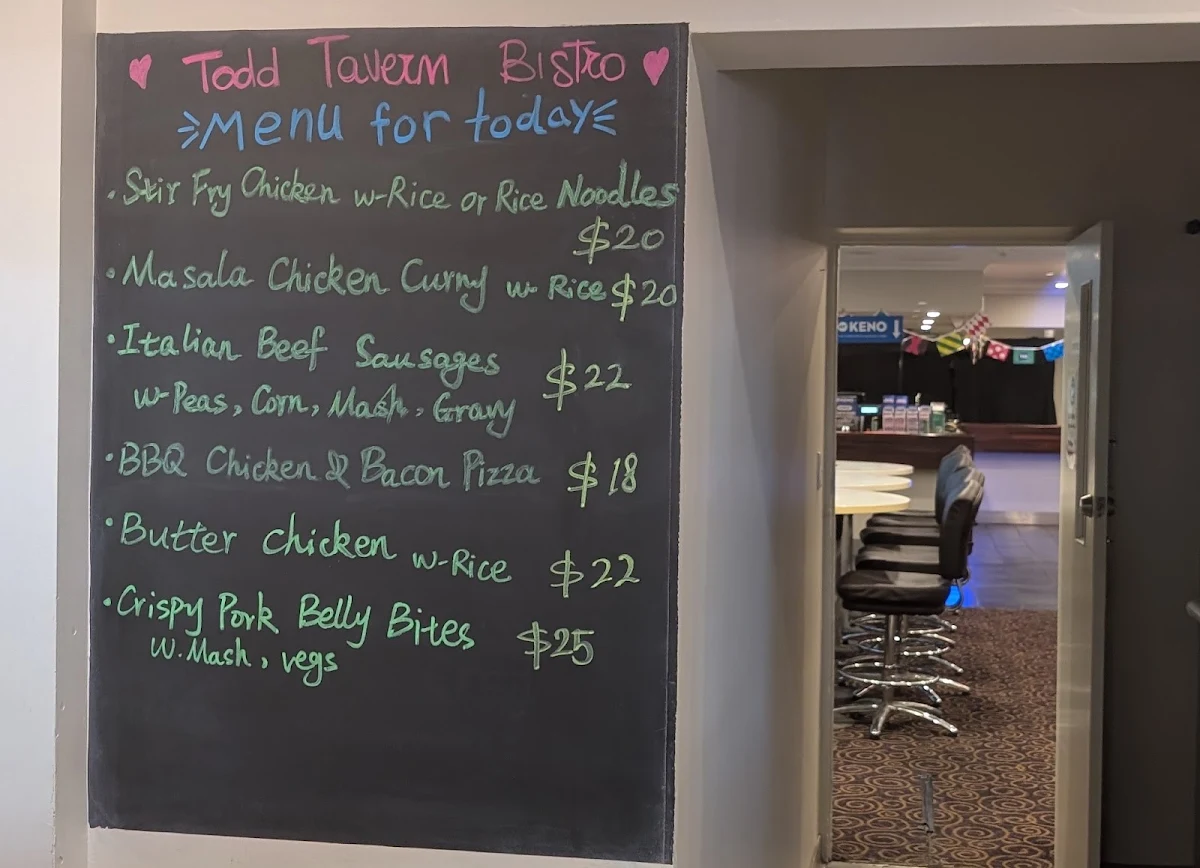 Todd Tavern Bistro
Menu for today
Stir Fry Chicken w-Rice or Rice Noodles
$20
Masala Chicken Curry w- Rice $20
Italian Beef Sausages
w-Peas, Corn, Mash, Gravy $22
BBQ Chicken & Bacon Pizza $18
Butter chicken w-Rice $22
Crispy Pork Belly Bites $25
W.Mash, vegs
KENO